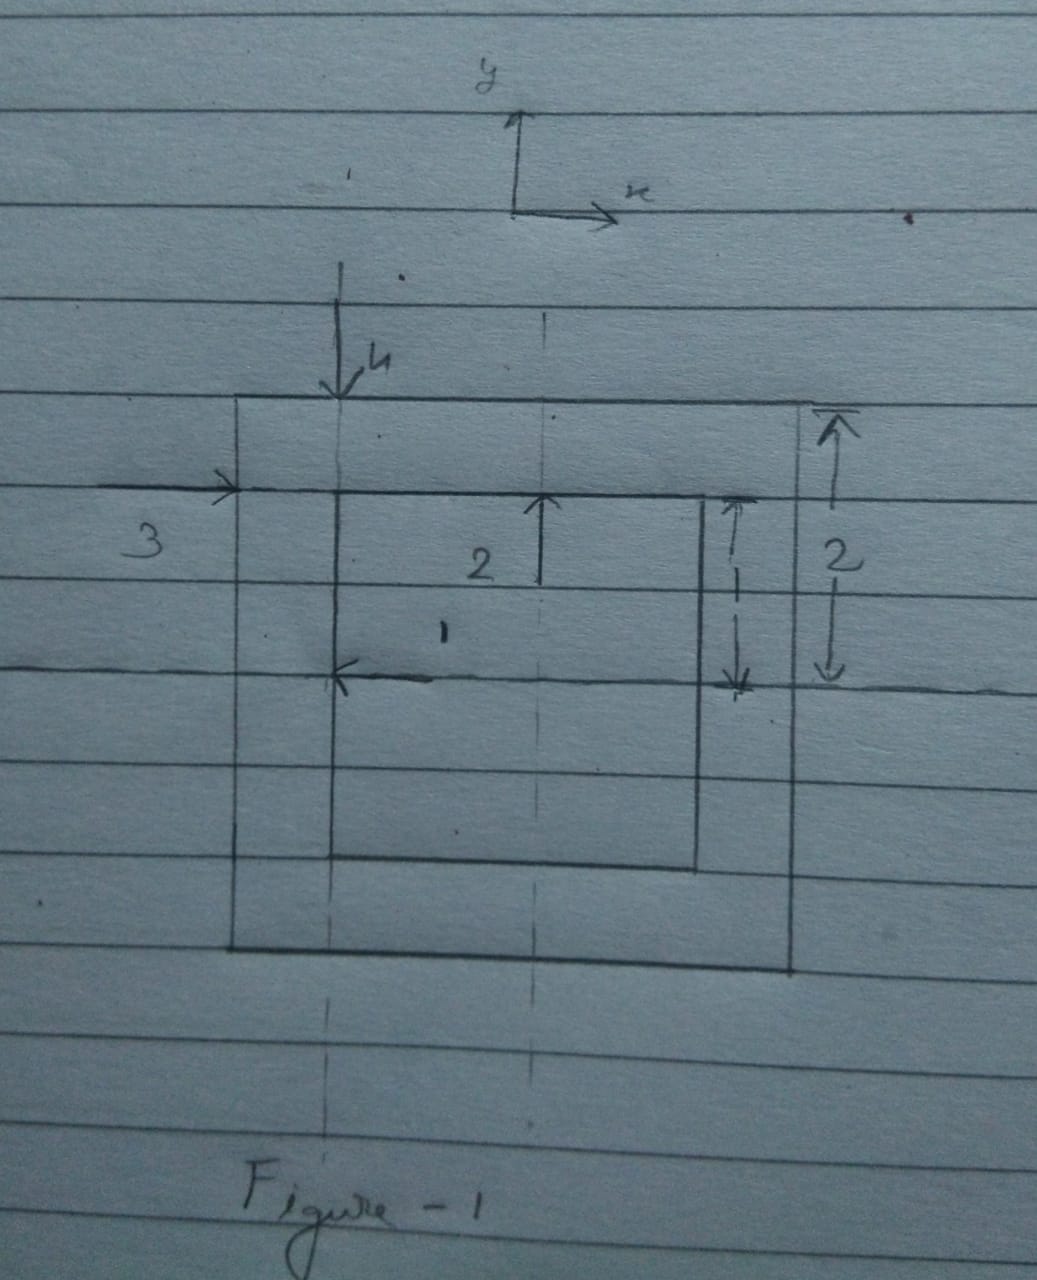 y
x
4
3
2
2
1
Figure - 1